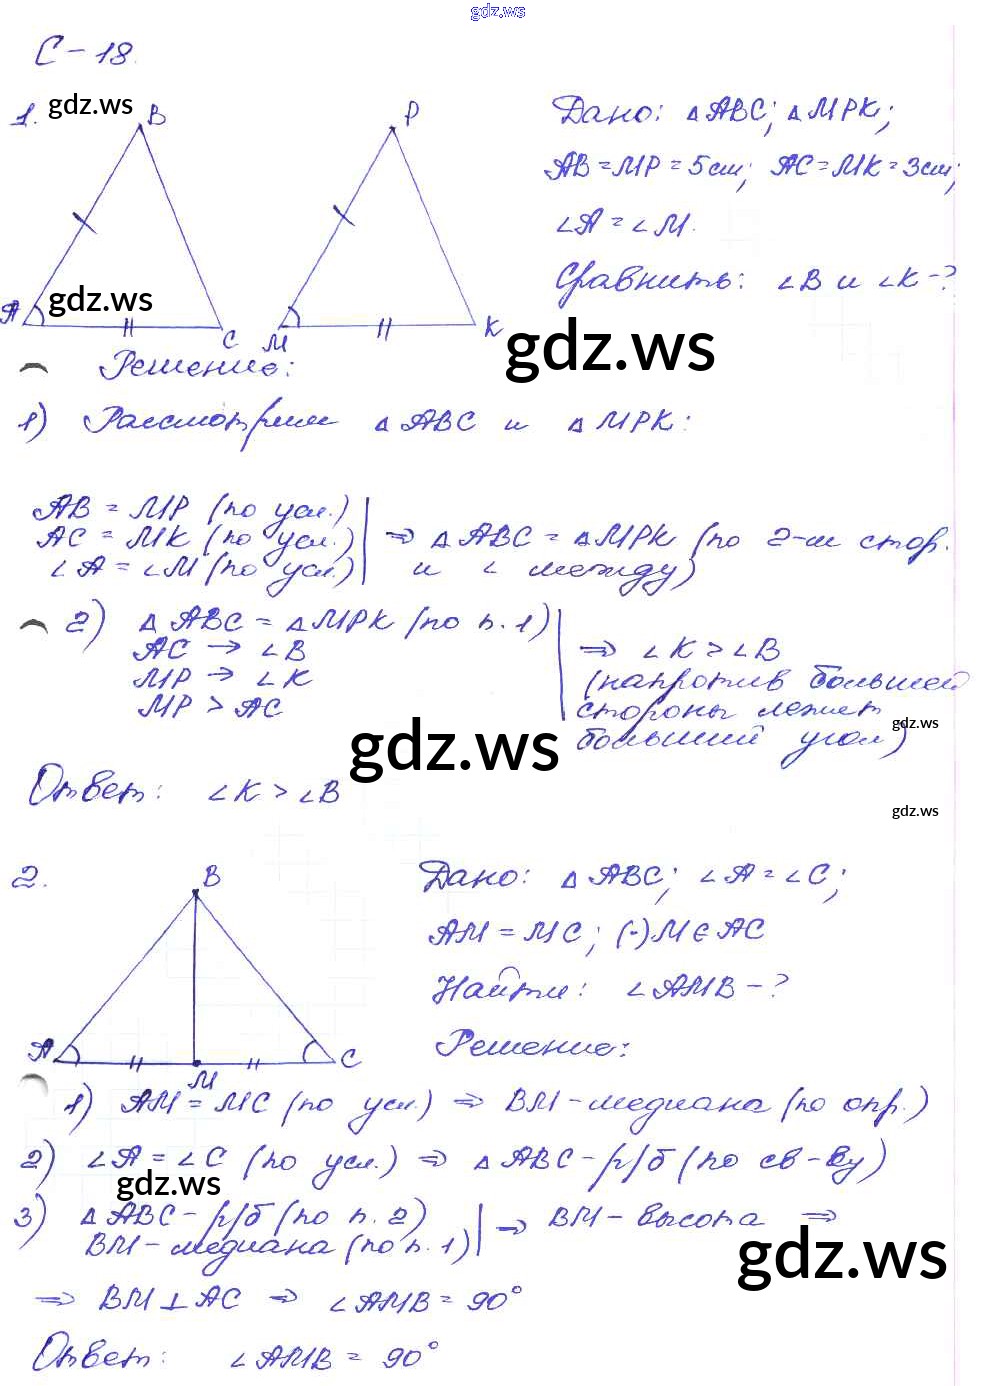 gdz.ws
С-18.
1.
gdz.ws
B
P
A
gdz.ws
C
M
K
Дано: △ABC; △MPK;
AB = MP = 5см; AC = MK = 3см;
∠A = ∠M.
Сравнить: ∠B и ∠K - ?
gdz.ws
Решение:
1) Рассмотрим △ABC и △MPK:
AB = MP (по усл.)
AC = MK (по усл.)
∠A = ∠M (по усл.)
⇒ △ABC = △MPK (по 2-м стор.
и ∠ между)
2) △ABC = △MPK (по п.1)
AC → ∠B
MP → ∠K
MP > AC
⇒ ∠K > ∠B
(напротив большей
стороны лежит
больший угол)
gdz.ws
gdz.ws
Ответ: ∠K > ∠B
gdz.ws
2.
B
A
M
C
Дано: △ABC; ∠A = ∠C;
AM = MC; (·)M∈AC
Найти: ∠AMB - ?
Решение:
1) AM = MC (по усл.) ⇒ BM - медиана (по опр.)
2) ∠A = ∠C (по усл.) ⇒ △ABC - р/б (по св-ву)
gdz.ws
3) △ABC - р/б (по п. 2)
BM - медиана (по п. 1)
⇒ BM - высота ⇒
gdz.ws
⇒ BM ⊥ AC ⇒ ∠AMB = 90°
Ответ: ∠AMB = 90°